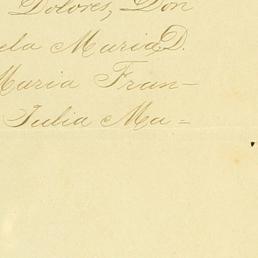 Dolores, Don
ela Maria, D.
Maria Fran-
Julia Ma=